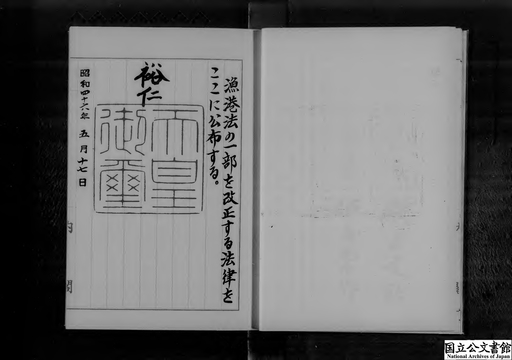 漁港法の一部を改正する法律を
ここに公布する。
裕仁
天皇
御璽
昭和四十六年 五月十七日
国立公文書館
National Archives of Japan